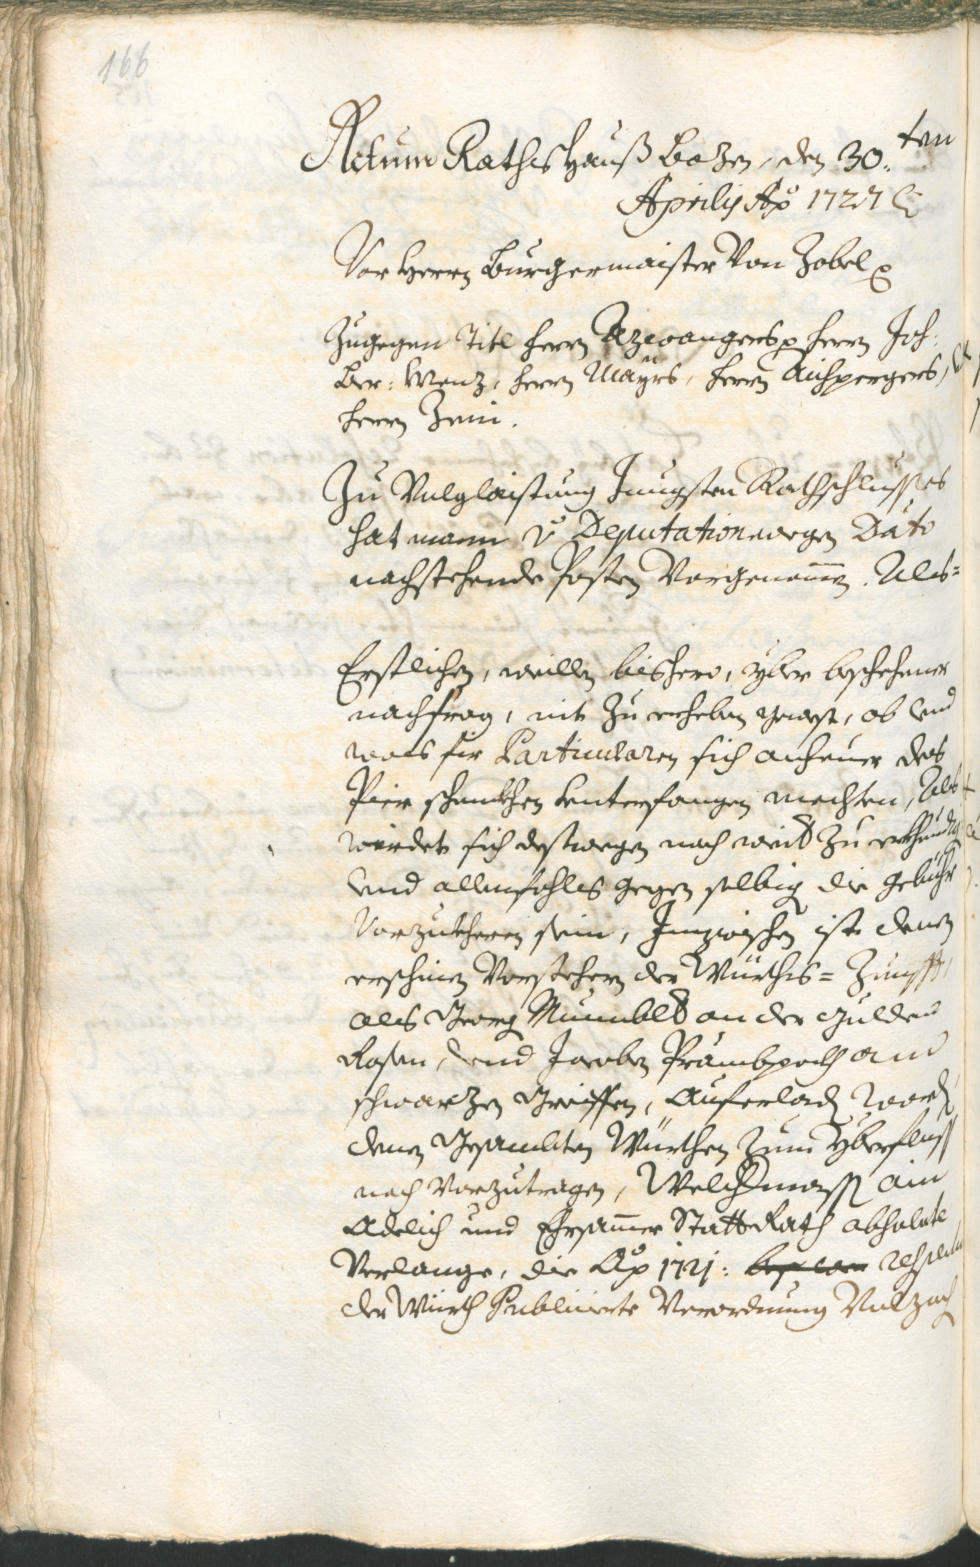 166
Actum RathsHauß Bozen, den 30. ten
Aprilis Ao 1727
Vor Herrn Burgermaister Von Zobel
Zugegen Titl herrn Azwangers herrn Joh:
Ber: Menz, herrn Mayrs, herrn Aichpergers,
herrn Zeni.
Zu Volglaistung Jüngsten Rathschlusses
hat mann Deputationwegen Dato
nachstehende Posten Vorgenommen. Als=
Erstlichen, weillen bishero, yber beschehene
nachfrag, nit Zu erheben gewest, ob und
was fir Particularn sich anheuer des
Pier schenkhen unterfangen mechten, Als
wirdet sich destwegen noch weit Zu erkhundig
und allenfahls gegen selbig die gebühr
Vorzukheren sein, Inzwischen ist denen
erschinen Vorstehern der Würths= Zunfft,
als Georg Mumblt an der Gulden
Rosen, und Jacoben Prämbpach am
schwarzen Greiffen, Auferladen worden
denen Gesambten Würthen Zum Yberfluss
noch Vorzutragen, Welchmass ain
Adelich und Ehrsammer StattRath absolute
Verlange, die Ao 1721:
der Würth Publicierte Verordnung Volzoch